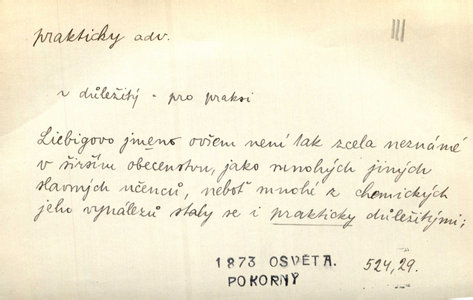 prakticky adv.
III
v důležitý - pro praksi
Liebigovo jméno ovšem není tak zcela neznámé
v širším obecenstvu, jako mnohých jiných
slavných učenců, neboť mnohé z chemických
jeho vynálezů staly se i prakticky důležitými;
1873 OSVĚTA. 524,29.
POKORNÝ